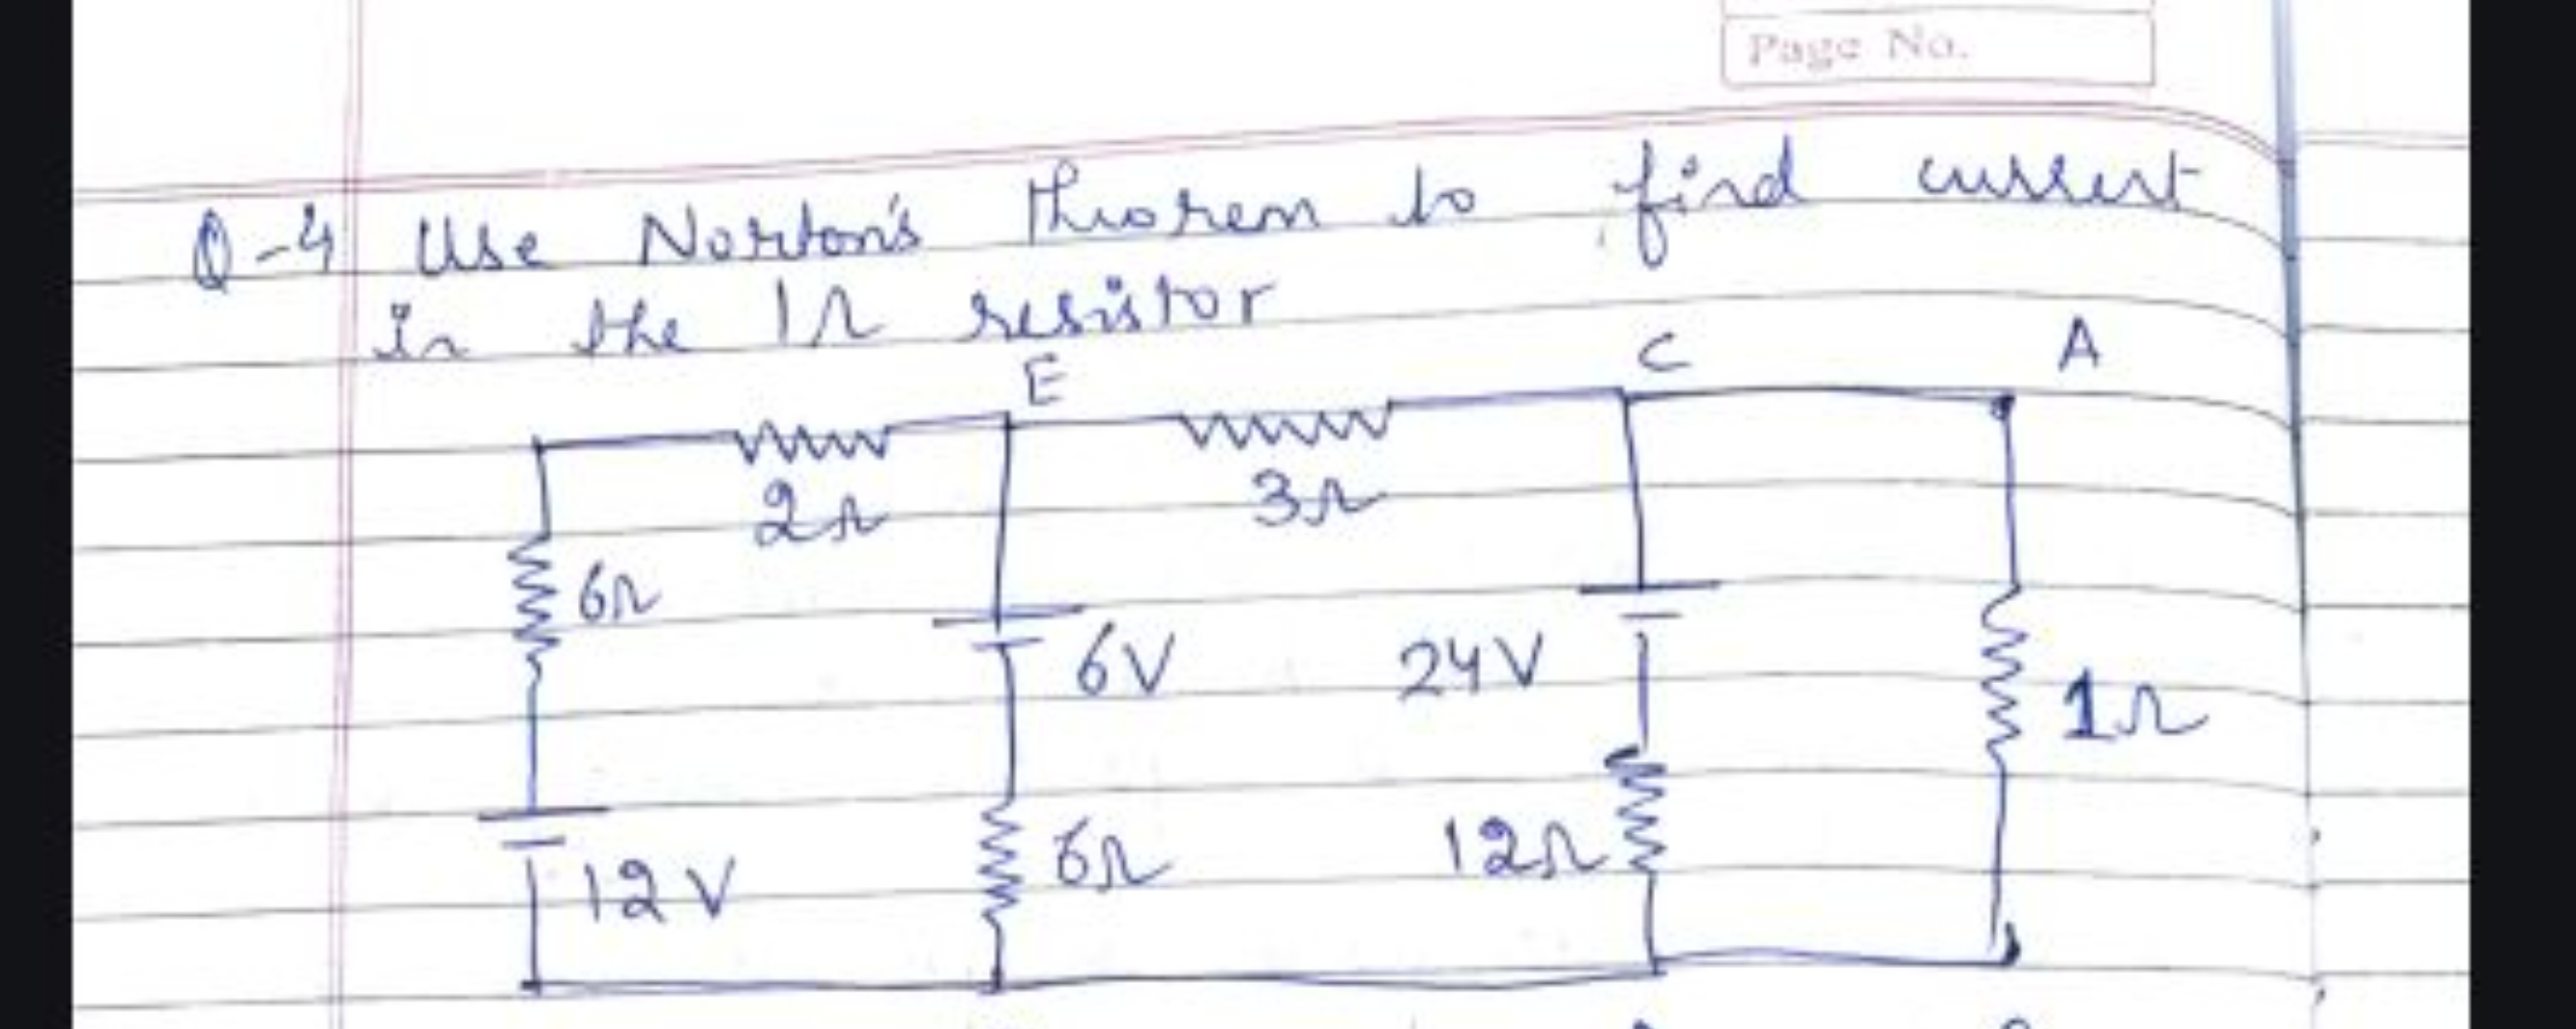 Page No.
Q-4 Use Norton's theorem to find current
in the 1Ω resistor
E C A
2Ω 3Ω
6Ω
6V 24V 1Ω
12V 6Ω 12Ω